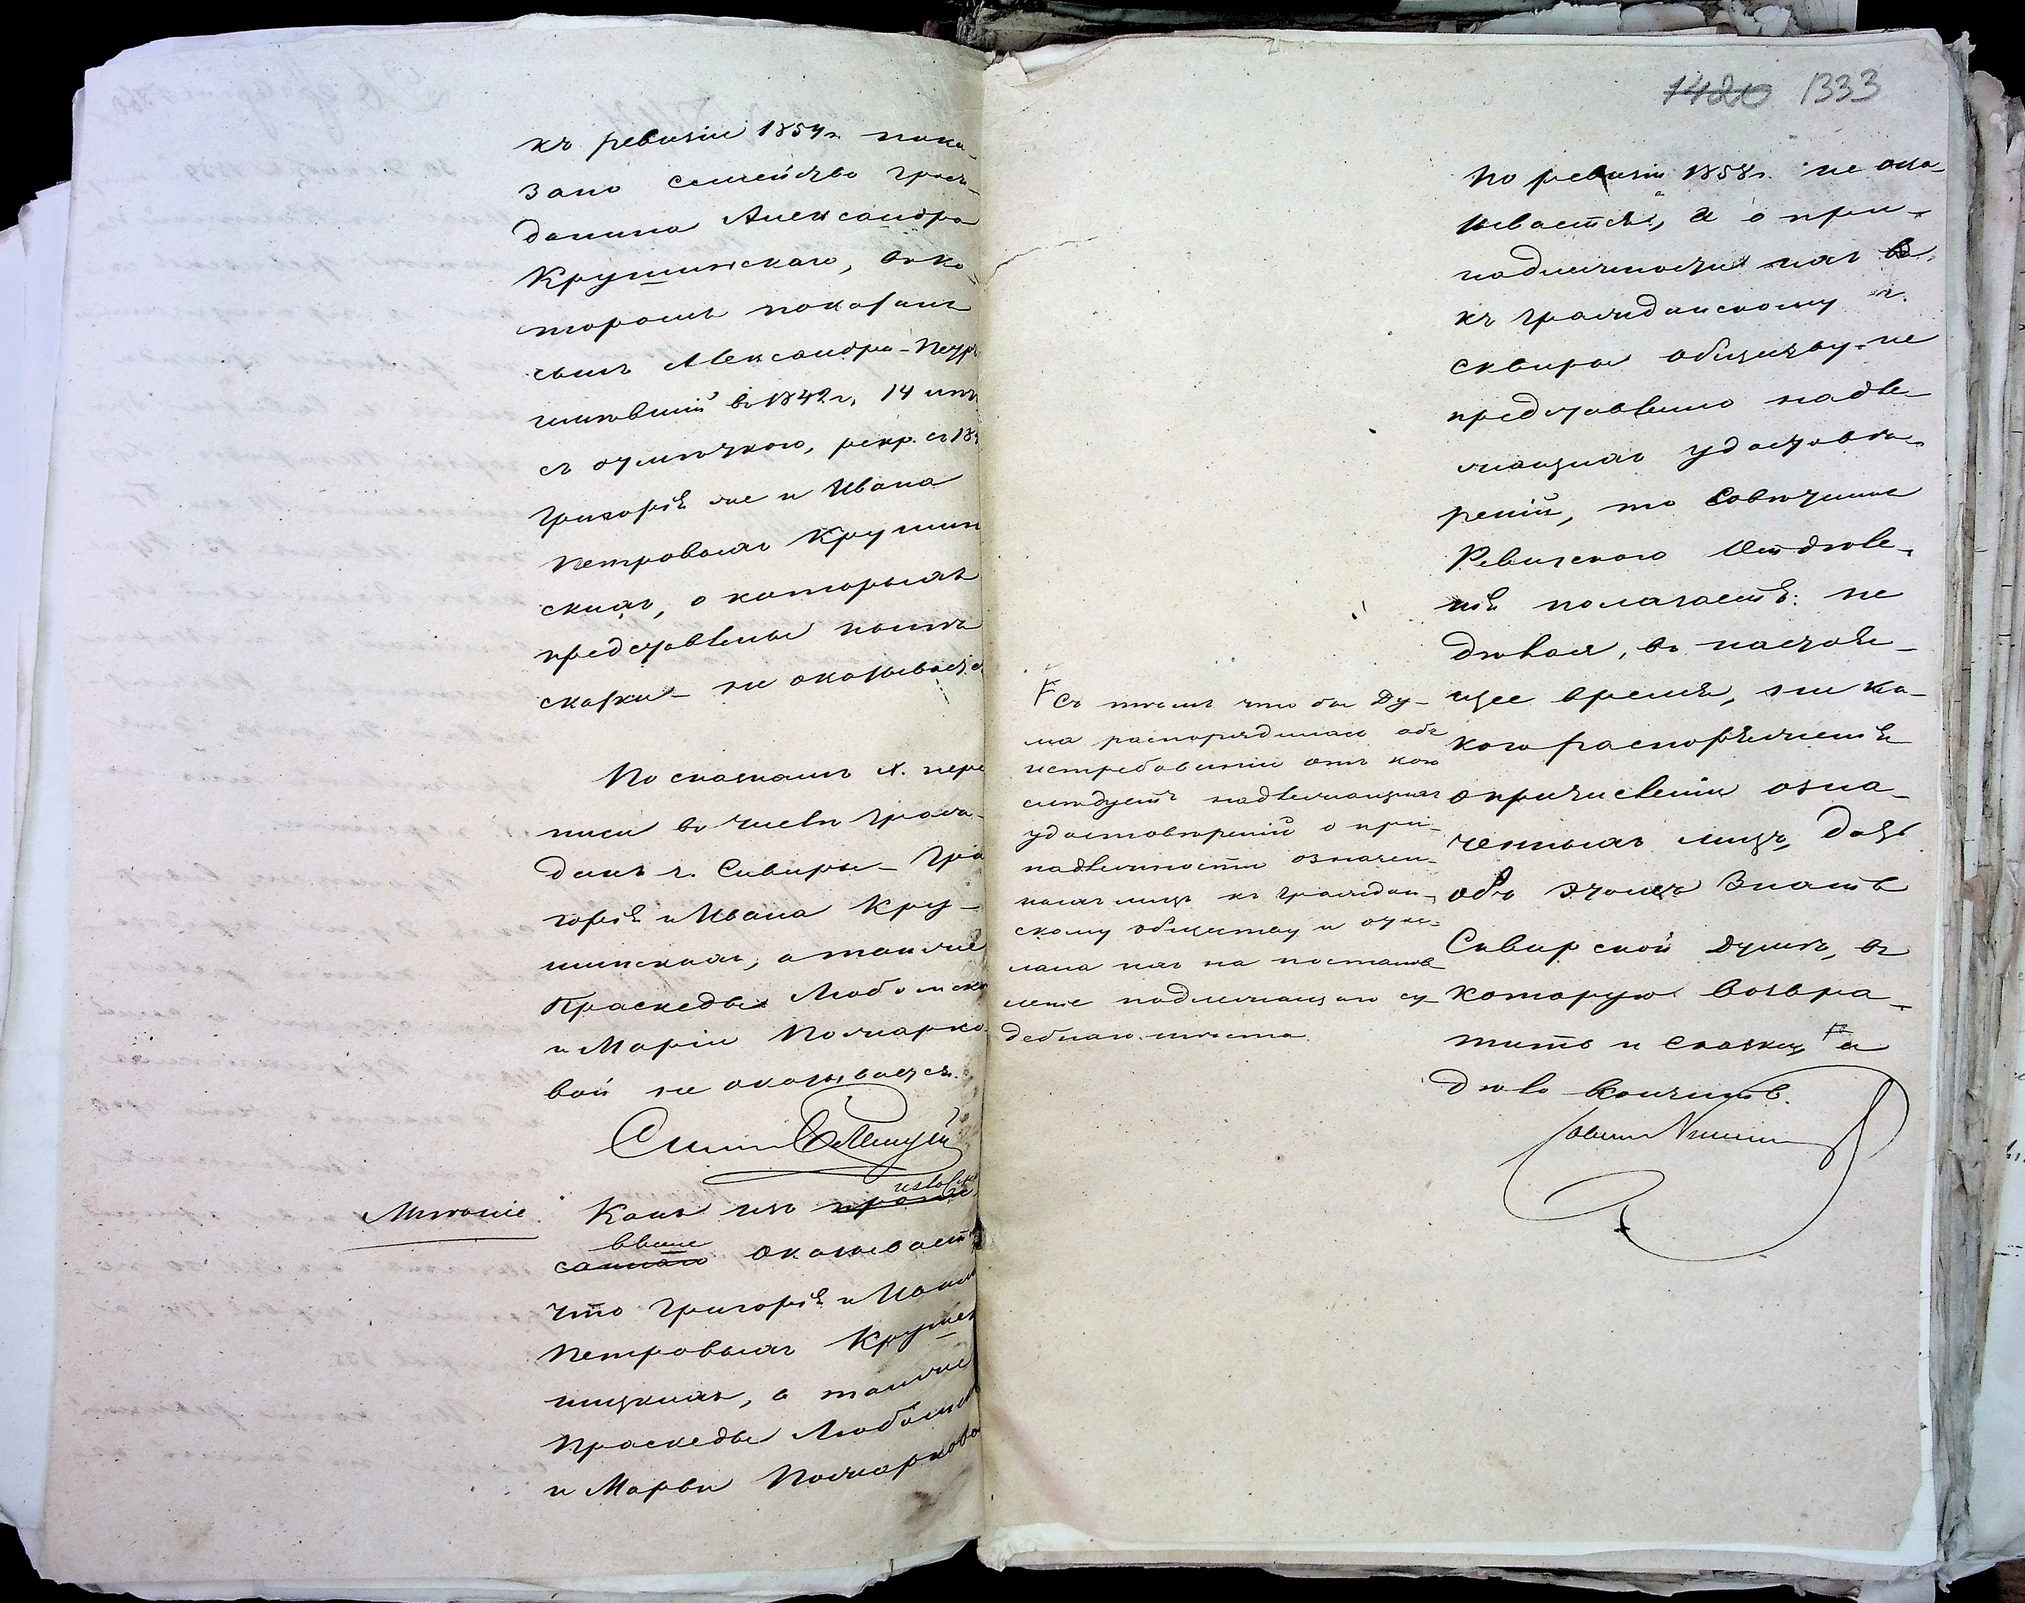 къ ревизіи 1854г. пока-
зано семейство граж-
данина Александра
Крушинскаго, въ ко-
торомъ показанъ
сынъ Александра - Петръ
умершій въ 1842 г, 14 лѣтъ
съ отмѣткою, рекр. съ 184
Григорія же и Ивана
Петровыхъ Крушин
скихъ, о которыхъ
представлены нынѣ
сказки - не оказывается
По сказкамъ X. пере
писи въ числѣ граж-
данъ г. Сквиры - Гри
горія и Ивана Кру-
шинскихъ, а также
Праскеды Любомско
и Маріи Пожарко-
вой не оказывается.
Мнѣніе. Какъ изъ
выше оказывает
что Григорія и Ивана
Петровыхъ Крушен
ицкихъ, а также
Праскеды Любомско
и Марьи Пожарково
1420 1333
по ревизіи 1858г. не ока-
зывается, и о при-
надлежности ихъ
къ гражданскому г.
Сквиры обществу не
представлено надле-
жащихъ удостовѣ-
реній, то Совѣтникъ
Ревизскаго Отдѣле-
нія полагаетъ: не
дѣлая, въ настоя-
щее время, ни ка-
кого распоряженія
о причисленіи озна-
ченныхъ лицъ, дать
объ этомъ знать
Сквирской Думѣ, въ
которую возвра-
тить и сказки, а
дѣло кончить.
Съ тѣмъ что бы Ду-
ма распорядилась объ
истребованіи отъ кого
слѣдуетъ надлежащихъ
удостовѣреній о при-
надлежности означен-
ныхъ лицъ къ граждан-
скому обществу и отос-
лала ихъ на постанов-
леніе подлежащаго су-
дебнаго мѣста